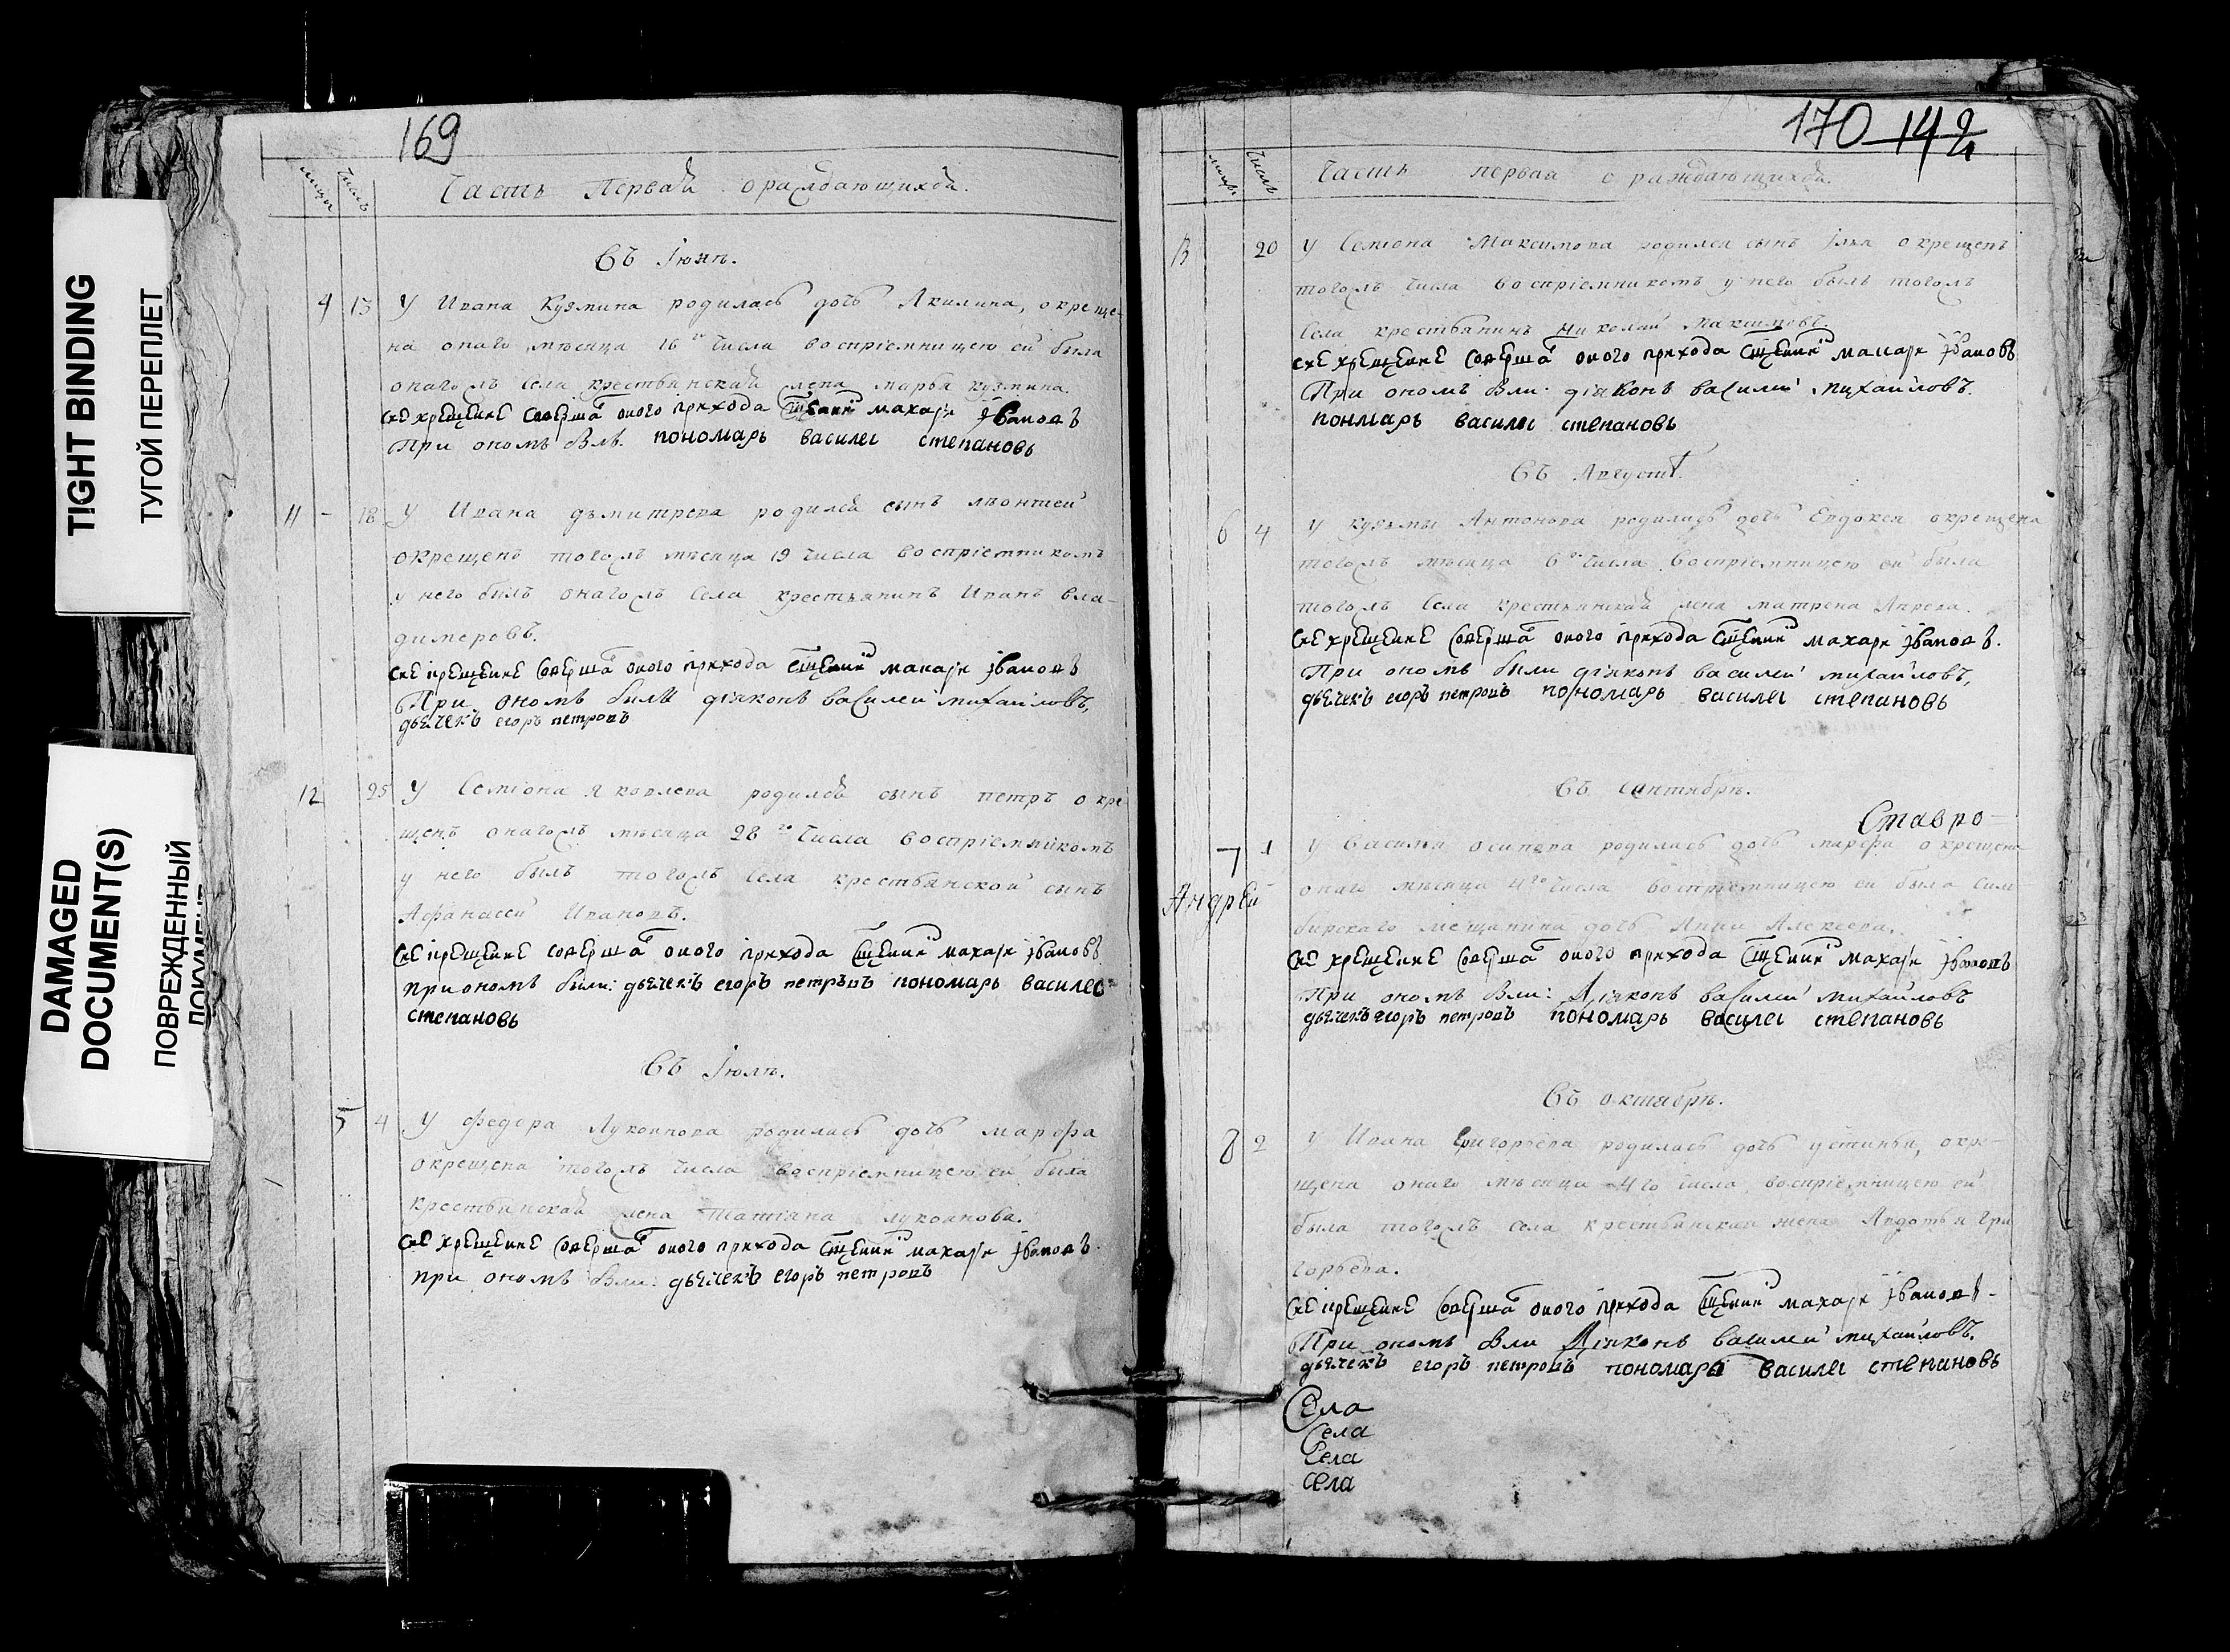 TIGHT BINDING
ТУГОЙ ПЕРЕПЛЕТ
DAMAGED
DOCUMENT(S)
ПОВРЕЖДЕННЫЙ
ДОКУМЕНТ
169
числъ
Часть Первая о раждающихся.
Въ Іюнѣ.
4 13 У Ивана Кузмина родилась дочь Акилина, окреще
на онаго мѣсяца 16 го числа воспріемницею ей была
онагожъ села крестьянская жена марья кузмина.
сие крещение совершал оного прихода сщенник макари Iвановъ
При ономъ были пономарь василеи степановъ
11 - 18 У Ивана дъмитрева родился сынъ лѣонтией
окрещенъ тогожъ мѣсяца 19 числа воспріемникомъ
у него былъ онагожъ села крестьянинъ Иванъ вла-
димеровъ.
сие крещение совершал оного прихода сщенник макари Iвановъ
При ономъ были діяконъ василей михайловъ,
дьячекъ егоръ петровъ
12 25 У Семіона яковлева родился сынъ петръ окре
щенъ онагожъ мѣсяца 28 го числа воспріемникомъ
у него былъ тогожъ села крестьянской сынъ
Афанассей Ивановъ.
сие крещение совершал оного прихода сщенник макари Iвановъ
при ономъ были: дьячекъ егоръ петровъ пономарь василеи
степановъ
Въ Іюлѣ.
5 4 У Федора Лукоянова родилась дочь марфа
окрещена тогожъ числа воспріемницею ей была
крестьянская жена татіана лукоянова.
сие крещение совершал оного прихода сщенник макари Iвановъ
при ономъ были: дьячекъ егоръ петровъ
170 142
числъ
Часть первая о раждающихся.
13 20 У Семіона Максимова родился сынъ Iлья окрещенъ
тогожъ числа воспріемникомъ у него былъ тогожъ
села крестьянинъ николай Максимовъ.
сие крещение совершал оного прихода сщенник макари Iвановъ
При ономъ были: діяконъ василей михайловъ.
понмарь василеи степановъ
Въ Августѣ.
6 4 У кузьмы Антонова родилась дочь Евдокея окрещена
тогожъ мѣсяца 6 го числа воспріемницею ей была
тогожъ села крестьянская жена матрена
сие крещение совершал оного прихода сщенник макари Iвановъ.
При ономъ были діяконъ василей михайловъ,
дьячекъ егоръ петровъ пономарь василеи степановъ
Въ сентябрѣ.
Ставро-
7 1 У Василья осипова родилась дочь марфа окрещена
Андрѣй
онаго мѣсяца 4 го числа воспріемницею ей была сим
бирскаго мещанина дочь Анна Алексеева.
сие крещение совершал оного прихода сщенник макари Iвановъ
При ономъ были: Діяконъ василей михайловъ
дьячекъ егоръ петровъ пономарь василеи степановъ
Въ октябрѣ.
8 2 У Ивана Григорьева родилась дочь устинья, окре
щена онаго мѣсяца 4го числа воспріемницею ей
была тогожъ села крестьянская жена Авдотья гри
горьева.
сие крещение совершал оного прихода сщенник макари Iвановъ -
При ономъ были Діяконъ василей михайловъ.
дьячекъ егоръ петровъ пономарь василеи степановъ
Села
Села
Села
села